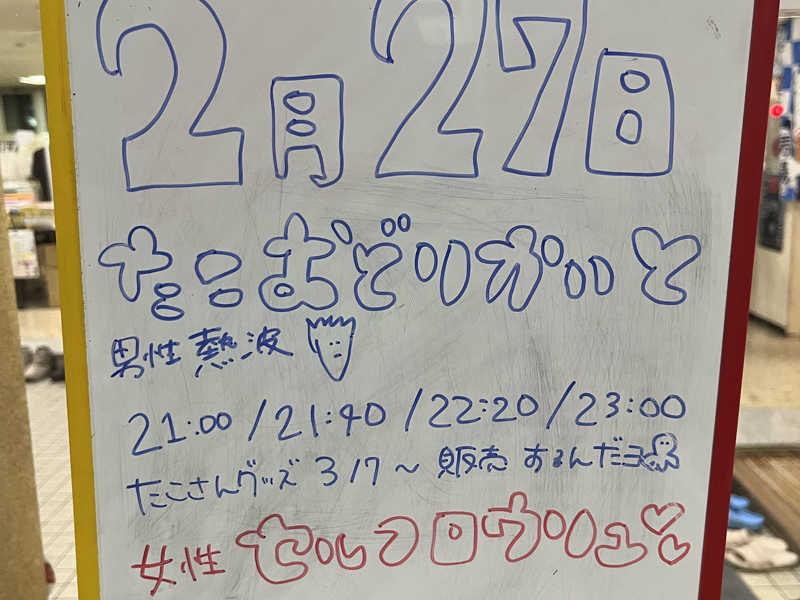 2月27日
たこおどりがいと
男性 熱波
21:00 / 21:40 / 22:20 / 23:00
たこさんグッズ 3/7 ～ 販売 するんだヨ
女性 セルフロウリュ